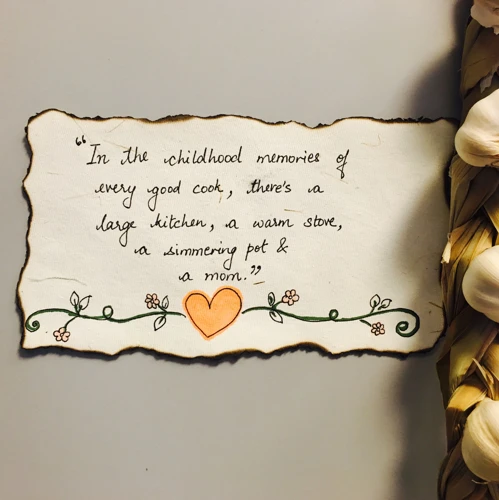 “In the childhood memories of
every good cook, there's a
large kitchen, a warm stove,
a simmering pot &
a mom.”